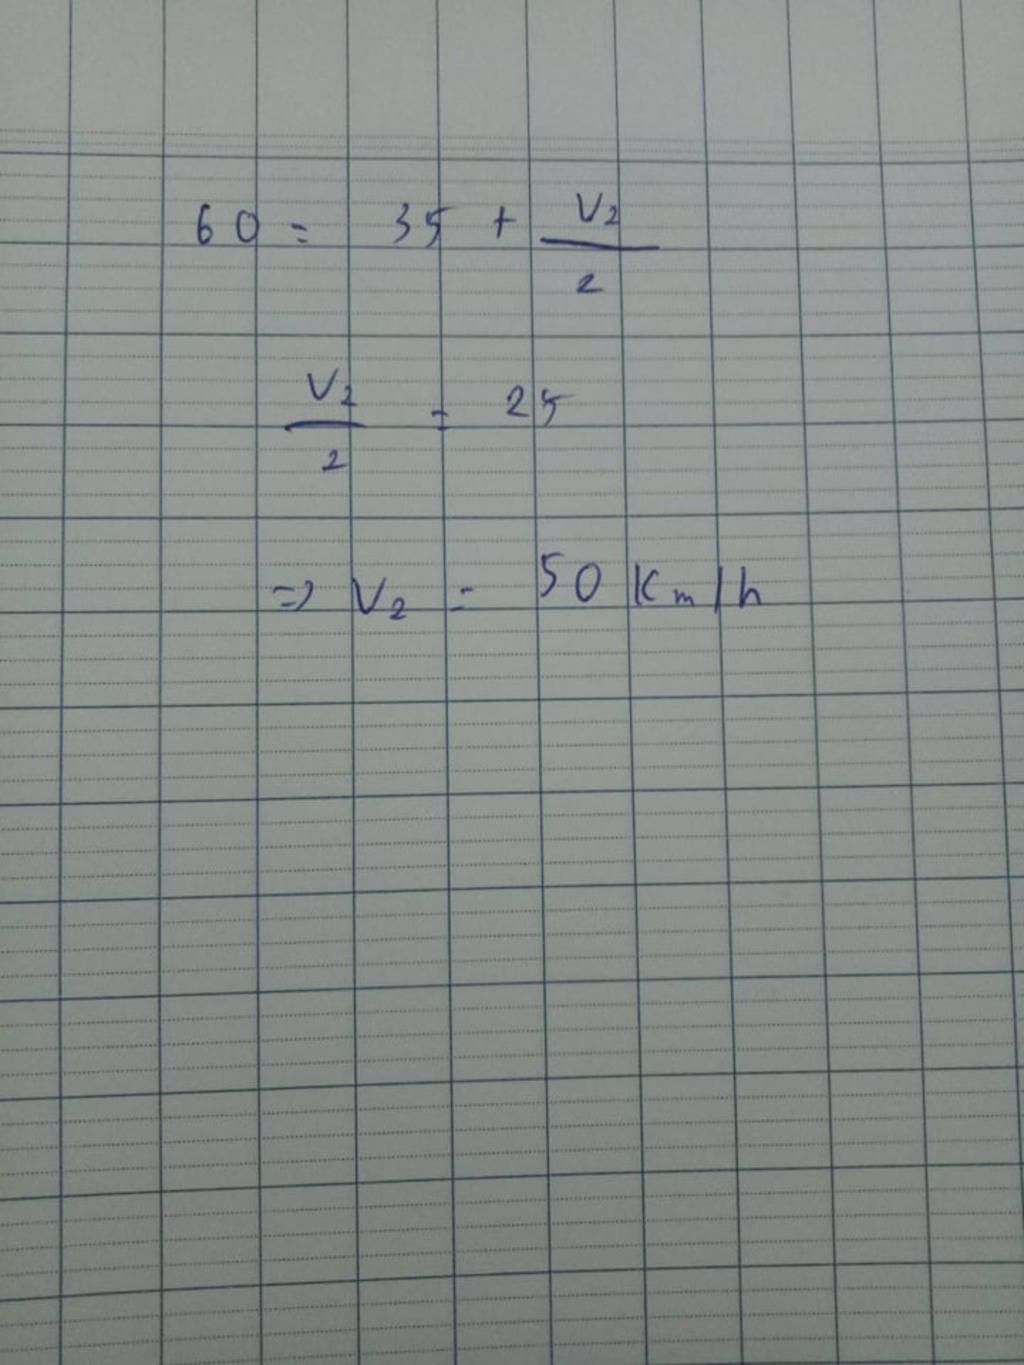 60 = 35 + V2/2
V2/2 = 25
=> V2 = 50 Km/h